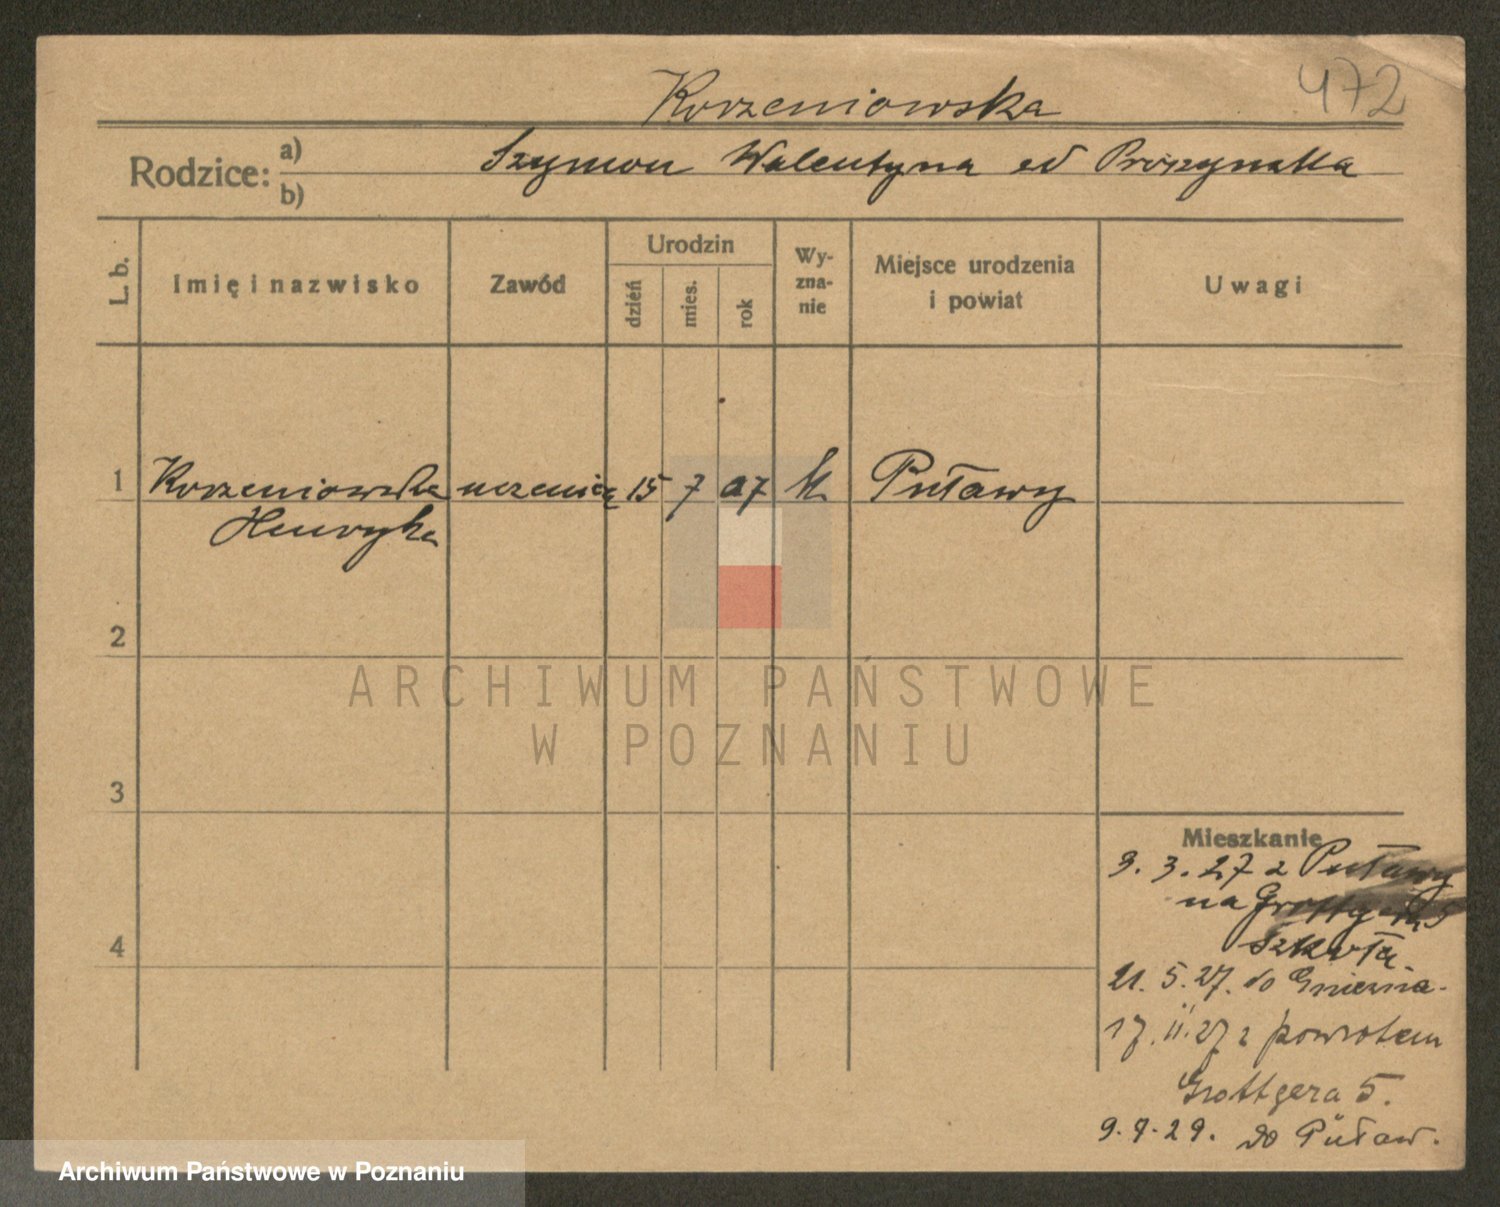 472
Korzeniowska
Rodzice: a) b)
Szymon Walentyna ed Prószynska
L. b.
Imię i nazwisko
Zawód
Urodzin
dzień
mies.
rok
Wy-
zna-
nie
Miejsce urodzenia
i powiat
Uwagi
1 Korzeniowska uczenica 15 7 07 k Puławy
Henryka
2
3
4
Mieszkanie
3. 3. 27 z Puławy
na Grottgera 5
21. 5. 27. do Gniezna.
17. 11. 27 z powrotem
Grottgera 5.
9. 7. 29. do Puław.
ARCHIWUM PAŃSTWOWE
W POZNANIU
Archiwum Państwowe w Poznaniu